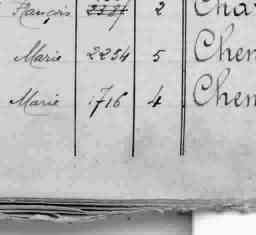 François 2
Marie 2254 5 Chen
Marie 1716 4 Chen